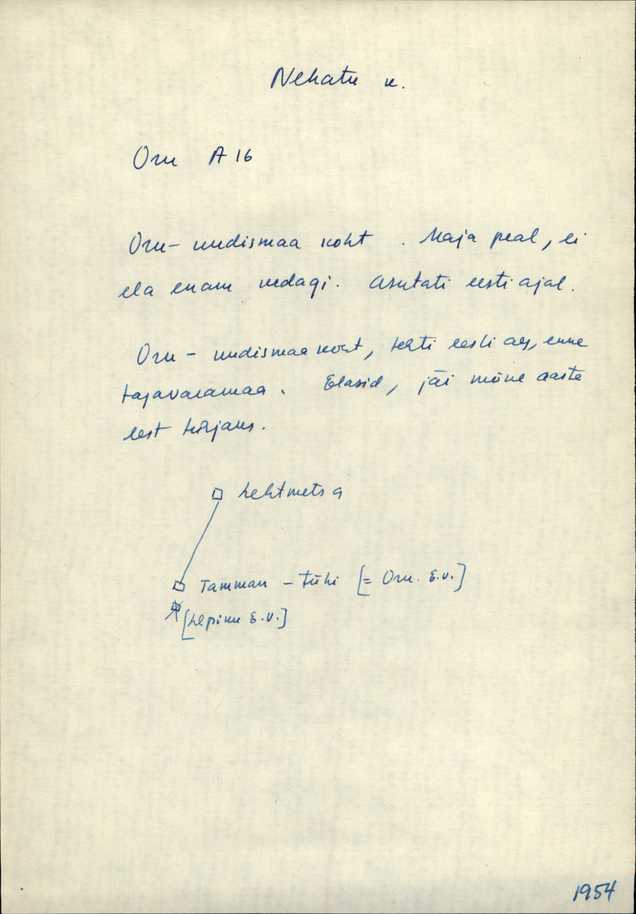 Nehatu k.
Oru A 16
Oru - uudismaa koht. Maja peal, ei
ela enam kedagi. Asutati eesti ajal.
Oru - uudismaa koht, tehti eesti aeg, enne
Elasid, jäi mõne aasta
eest
Lehtmetsa
Tamman - tühi [= Oru. E.V.]
[Lepiku E.V.]
1954